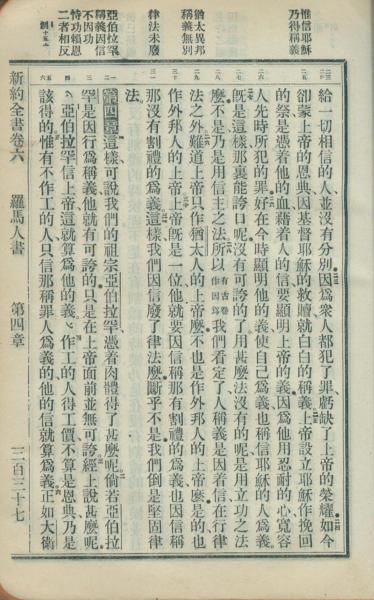 惟信耶穌
乃得稱義
猶太異邦
稱義無別
律法未廢
亞伯拉罕
稱義因信
不因功
恃功賴恩
二者相反
創十五六
給一切相信的人、並沒有分別、因爲衆人都犯了罪、虧缺了上帝的榮耀、如今
卻蒙上帝的恩典、因基督耶穌的救贖、就白白的稱義、上帝設立耶穌作挽回
的祭、是憑着他的血、藉着人的信、要顯明上帝的義、因爲他用忍耐的心、寬容
人先時所犯的罪、好在今時顯明他的義、使自己爲義、也稱信耶穌的人爲義、
既是這樣、那裏能誇口呢、沒有可誇的了、用甚麼法沒有的呢、是用立功之法
麼、不是、乃是用信主之法、所以有古卷作因爲我們看定了、人稱義是因着信、不在行律
法之外、難道上帝只作猶太人的上帝麼、不也是作外邦人的上帝麼、是的、也
作外邦人的上帝、上帝既是一位、他就要因信稱那有割禮的爲義、也因信稱
那沒有割禮的爲義、這樣、我們因信廢了律法麼、斷乎不是、我們倒是堅固律
法、
第四章 這樣、可說我們的祖宗亞伯拉罕、憑着肉體得了甚麼呢、倘若亞伯拉
罕是因行爲稱義、他就有可誇的、只是在上帝面前並無可誇、經上說甚麼呢、
亞伯拉罕信上帝、這就算爲他的義、作工的人得工價、不算是恩典、乃是
該得的、惟有不作工的人、只信那稱罪人爲義的、他的信就算爲義、正如大衛
新約全書卷六　羅馬人書　第四章　三百三十七